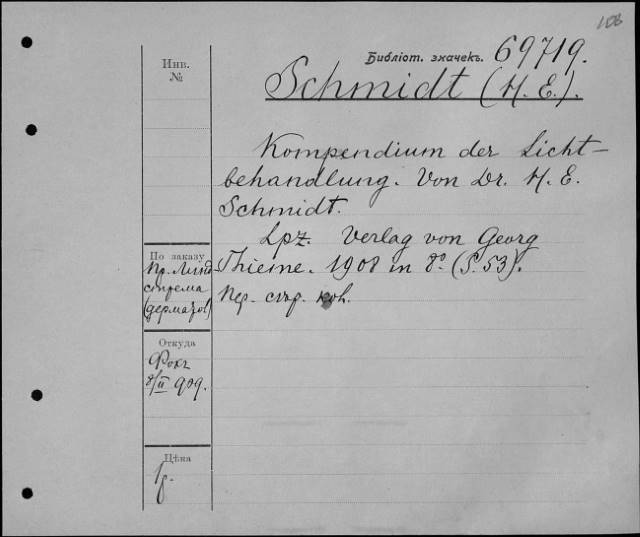 108
Библіот. значекъ. 69719.
Инв.
№
Schmidt (H. E.).
Kompendium der Licht-
behandlung. Von Dr. H. E.
Schmidt.
Lpz. Verlag von Georg
Thieme. 1908 in 8º. (S. 53).
Пер.
По заказу
Пр. Линд
стрема
(дерматол)
Откуда
8/II 909.
Цѣна